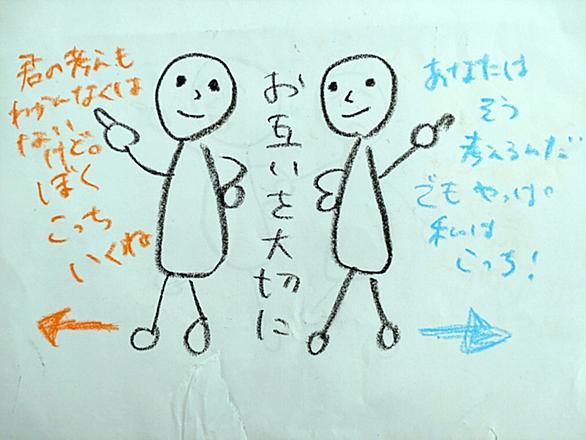 君の考えも
わかんなくは
ないけど。
ぼく
こっち
いくね
お互いを大切に
あなたは
そう
考えるんだ
でもやっぱ。
私は
こっち!